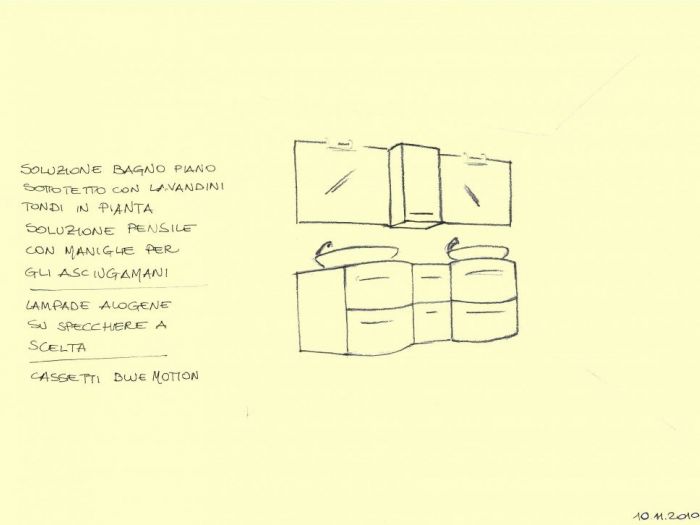 SOLUZIONE BAGNO PIANO
SOTTOTETTO CON LAVANDINI
TONDI IN PIANTA
SOLUZIONE PENSILE
CON MANIGLIE PER
GLI ASCIUGAMANI
LAMPADE ALOGENE
SU SPECCHIERE A
SCELTA
CASSETTI BLUE MOTION
10.11.2010